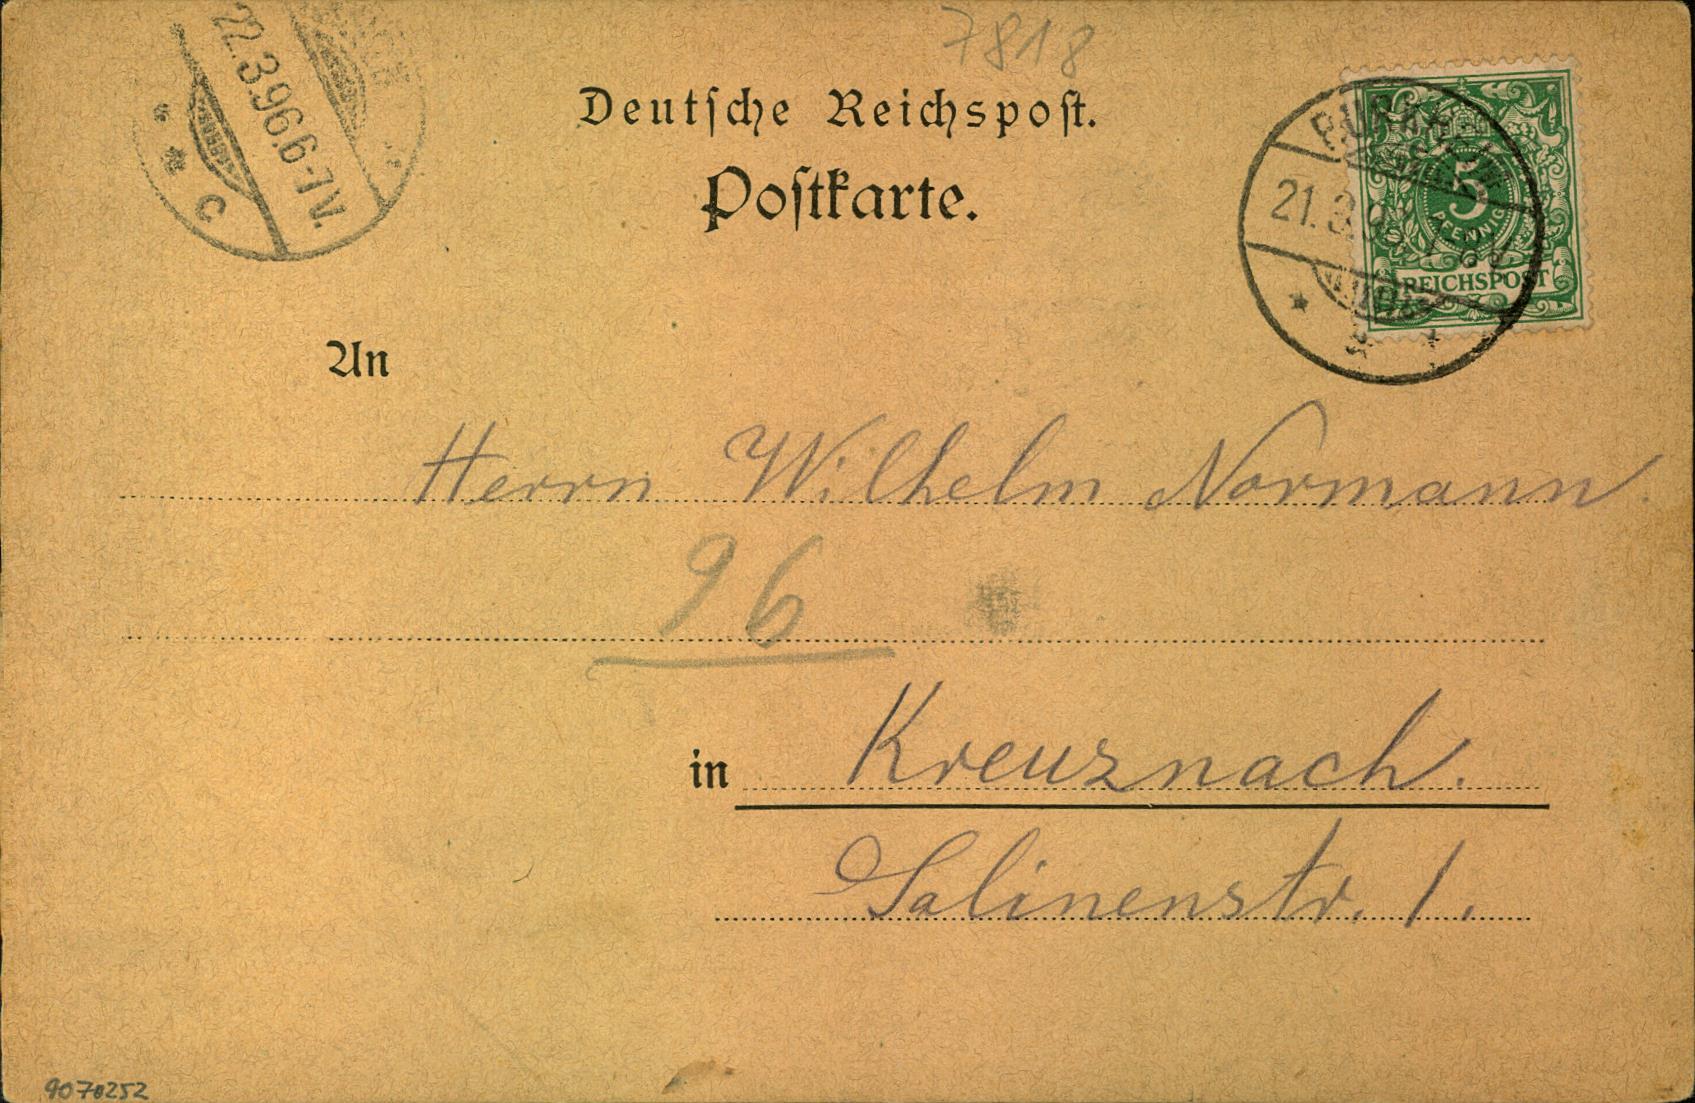 7818
22.3.96.6-7V.
C
Deutsche Reichspost.
Postkarte.
5
PFENNIG
REICHSPOST
21.3.96
An
Herrn Wilhelm Normann.
96
in Kreuznach.
Salinenstr. 1.
9070252